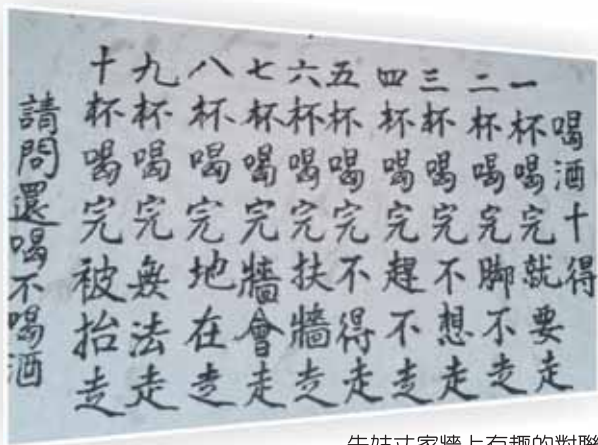 喝酒十得
一杯喝完就要走
二杯喝完脚不走
三杯喝完不想走
四杯喝完趕不走
五杯喝完不得走
六杯喝完扶牆走
七杯喝完牆會走
八杯喝完地在走
九杯喝完無法走
十杯喝完被抬走
請問還喝不喝酒
妹丈家牆上有趣的對聯